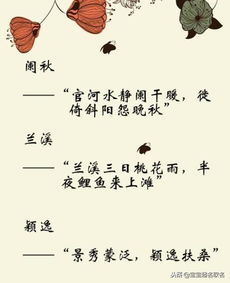 阑秋
——“官河水静阑干暖，徙
倚斜阳怨晚秋”
兰溪
——“兰溪三日桃花雨，半
夜鲤鱼来上滩”
颖逸
——“景秀蒙泛，颖逸扶桑”
头条@宝宝起名取名